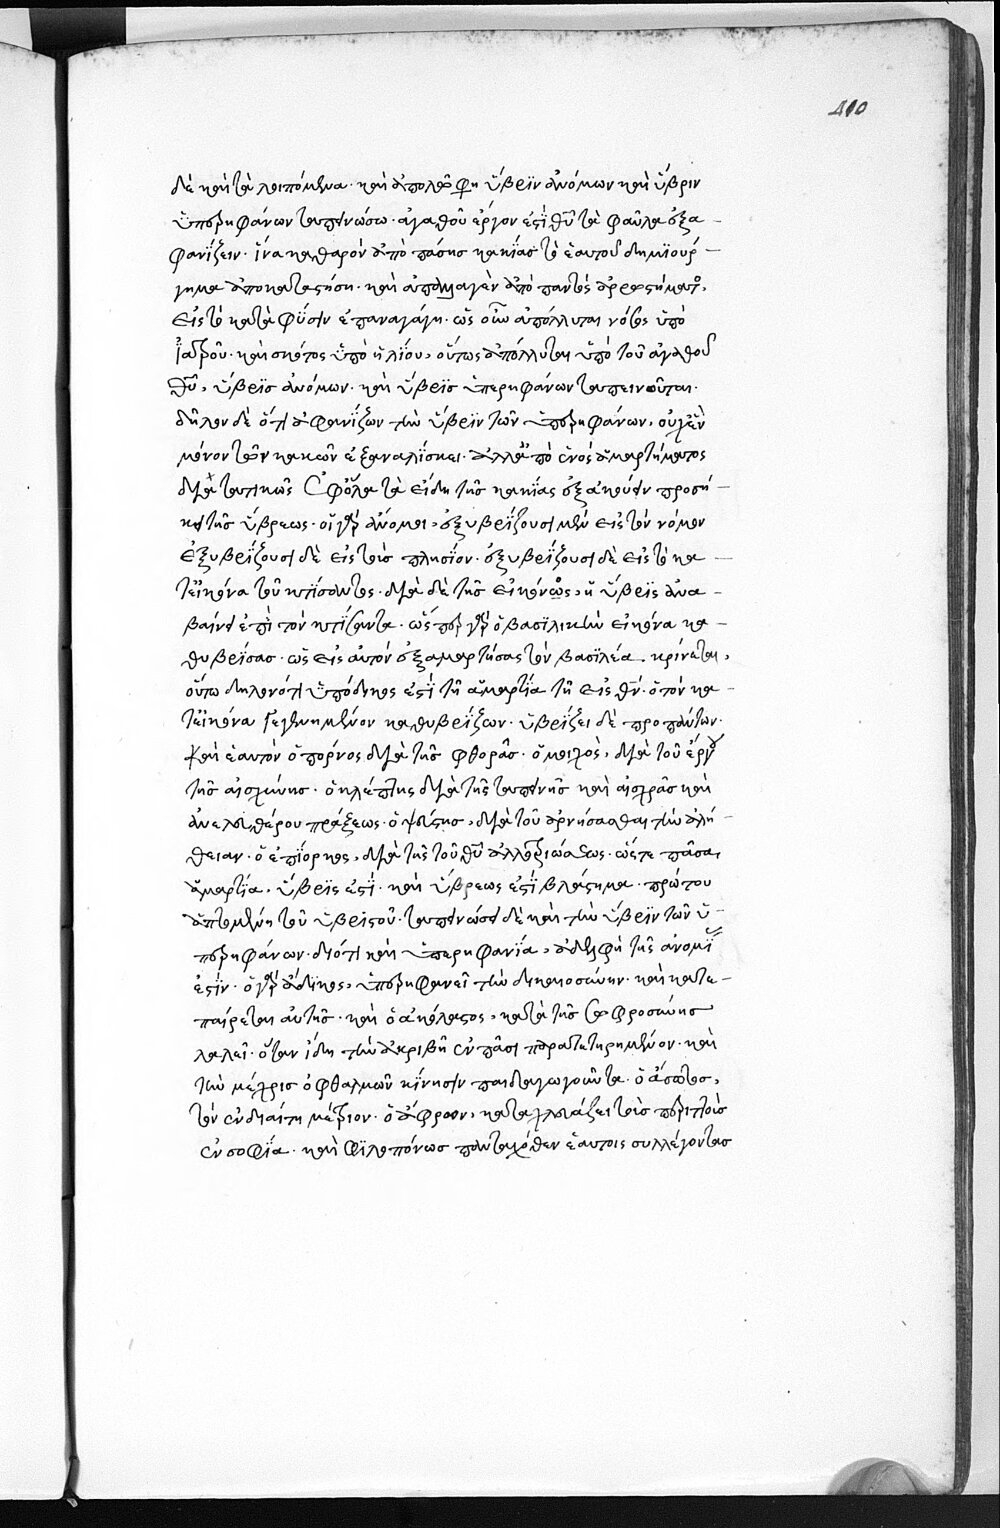 410
δὲ καὶ τὰ λειπόμενα· καὶ ἀπολεῖται ὕβρϊν ἀνόμων καὶ ὕβριν
ὑπερηφάνων ταπεινώσω· ἀγαθοῦ ἔργον ἐστὶ θῦ τὰ φαῦλα ἐξα
φανίζειν· ἵνα καθαρὸν ἀπὸ πάσης κακίας τὸ ἑαυτοῦ δημιούρ
γημα ἀποκαταστήσῃ· καὶ ἀπαλλαγὲν ἀπὸ παντὸς ἀρρωστήματος,
εἰς τὸ κατὰ φύσιν ἐπαναγάγῃ· ὡς οὖν ἀπόλλυται νόσος ὑπὸ
ἰατροῦ· καὶ σκότος ὑπὸ ἡλίου, οὕτως ἀπόλλυται ὑπὸ τοῦ ἀγαθοῦ
θῦ, ὕβρεις ἀνόμων· καὶ ὕβρεις ὑπερηφάνων ταπεινοῦται·
δῆλον δὲ ὅτι ἀφανίζων τὴν ὕβριν τῶν ὑπερηφάνων, οὐχ ἓν
μόνον τῶν κακῶν ἐξαναλίσκει· ἀλλὰ ἀπὸ ἑνὸς ἁμαρτήματος
μετὰ τατικῶς ὅλα τὰ εἴδη τῆς κακίας ἐξακούειν προσή
κει τῆς ὕβρεως· οἱ γὰρ ἄνομοι, ἐξυβρίζουσι μὲν εἰς τὸν νόμον
ἐξυβρίζουσι δὲ εἰς τοὺς πλησίον· ἐξυβρίζουσι δὲ εἰς τὸ κα
τεικόνα τοῦ κτίσαντος· διὰ δὲ τῆς εἰκόνος, ἡ ὕβρις ἀνα
βαίνει ἐπὶ τὸν κτίσαντα· ὥσπερ γὰρ ὁ βασιλικὴν εἰκόνα κα
θυβρίσας· ὡς εἰς αὐτὸν ἐξαμαρτήσας τὸν βασιλέα κρίνεται,
οὕτω δηλονότι ὑπόδικος ἐστὶ τῇ ἁμαρτίᾳ τῇ εἰς θν· ὁ τὸν κα
τεικόνα γεγενημένον καθυβρίζων· ὑβρίζει δὲ πρὸ πάντων·
καὶ ἑαυτὸν ὁ πόρνος διὰ τῆς φθορᾶς· ὁ μοιχὸς, διὰ τοῦ ἔργου
τῆς αἰσχύνης· ὁ κλέπτης διὰ τῆς ταπεινῆς καὶ αἰσχρᾶς καὶ
ἀνελευθέρου πράξεως· ὁ ψεύστης, διὰ τοῦ ἀρνήσασθαι τὴν ἀλή
θειαν· ὁ ἐπίορκος, διὰ τῆς τοῦ θῦ ἀλλοτριώσεως· ὥστε πᾶσα
ἁμαρτία, ὕβρις ἐστὶ· καὶ ὕβρεως ἐστὶ βλάστημα· πρώτου
ἁπτομένη τοῦ ὑβριστοῦ· ταπεινώσει δὲ καὶ τὴν ὕβριν τῶν ὑ
περηφάνων· διότι καὶ ὑπερηφανία, ἀδελφὴ τῆς ἀνομί
ἐστίν· ὁ γὰρ ἄδικος, ὑπερηφανεῖ τὴν δικαιοσύνην· καὶ κατε
παίρεται αὐτῆς· καὶ ὁ ἀκόλαστος, κατὰ τῆς σωφροσύνης
λαλεῖ· ὅταν ἴδῃ τὴν ἀκριβῆ ἐν πᾶσι παρατετηρημένον· καὶ
τὴν μέχρις ὀφθαλμῶν κίνησιν παιδαγωγοῦντα· ὁ ἄσωτος,
τὸν ἐν διαίτῃ μέτριον· ὁ ἄφρων, καταχλευάζει τοὺς περιττοὺς
ἐν σοφίᾳ· καὶ φιλοπόνως πανταχόθεν ἑαυτοῖς συλλέγοντας